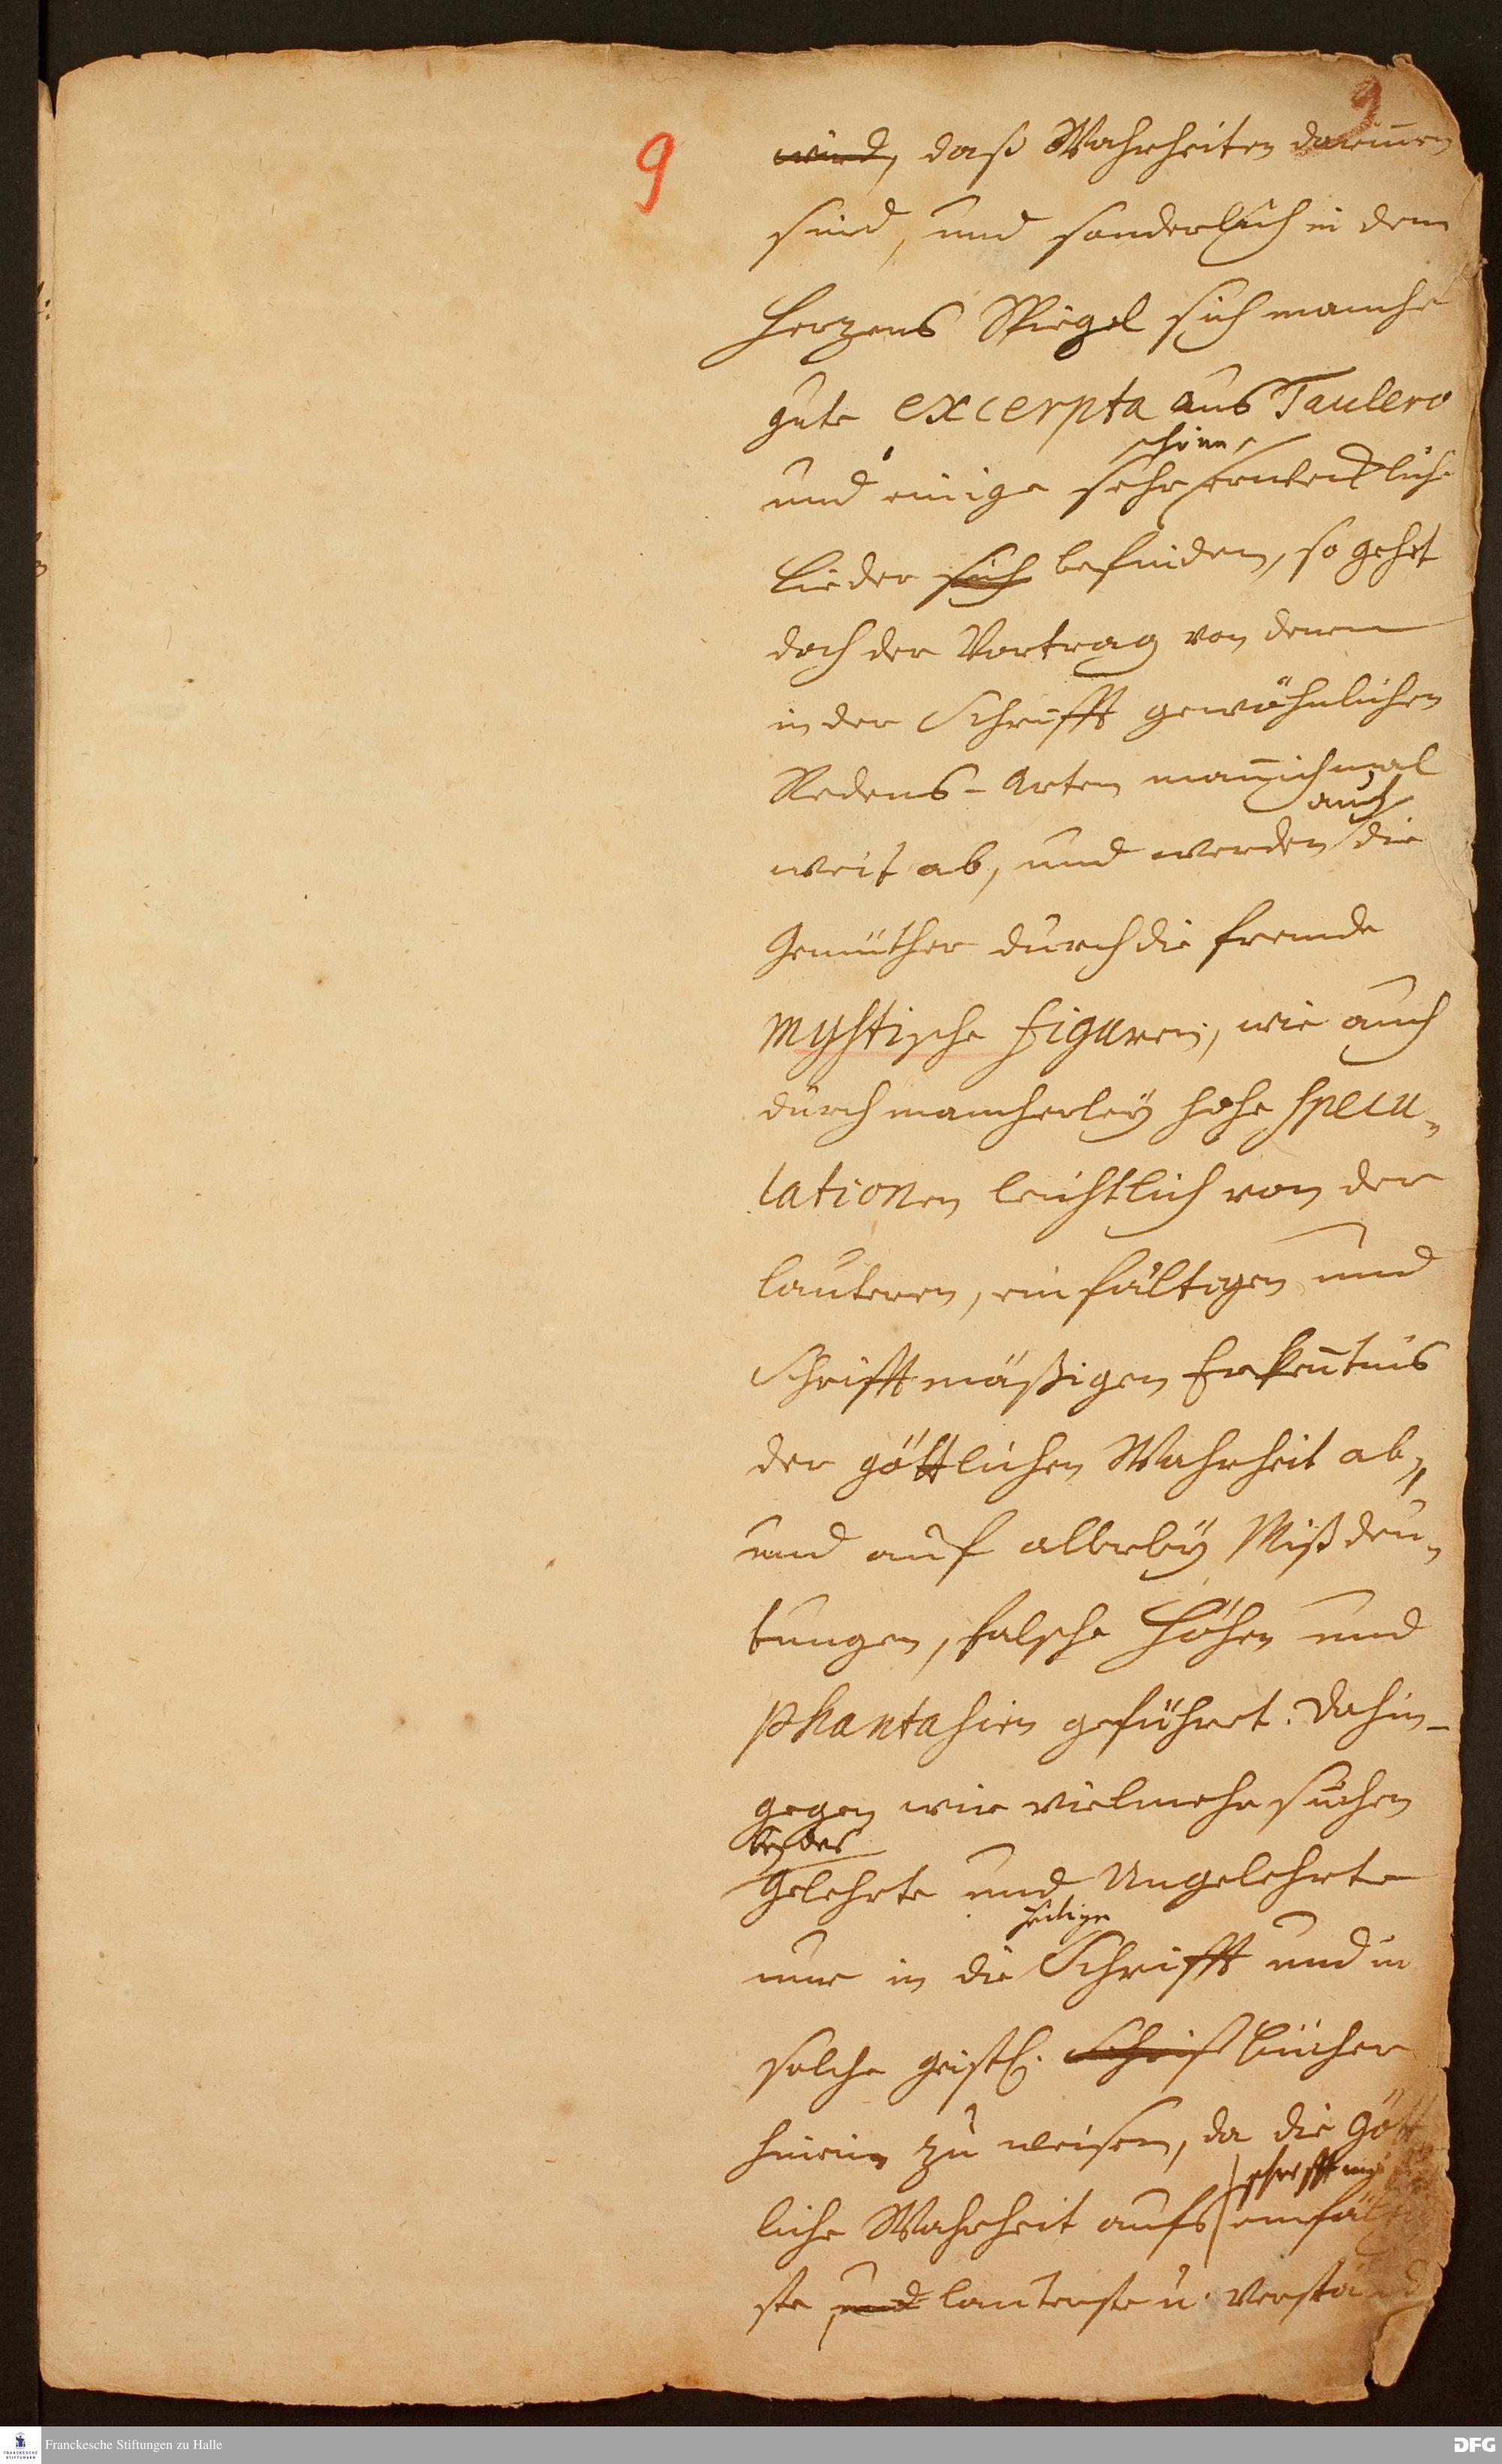 9
9
wird, daß Wahrheiten dariñen
sind, und sonderlich in dem
Herzens Spiegel sich manche
gute excerpta aus Taulero
schöne
und einige sehr erweckliche
Lieder sich befinden, so gehet
doch der Vortrag von denen
in der Schrifft gewöhnlichen
Redens-Arten mañichmal
auch
weit ab, und werden die
Gemüther durch die fremde
mystische Figuren, wie auch
durch mancherley hohe specu-
lationen leichtlich von der
lauteren, einfältigen und
Schrifftmäßigen Erkeñtnis
der göttlichen Wahrheit ab-
und auf allerley Mißdeu-
tungen, falsche Höhen und
phantasien geführet. Dahin-
gegen wir vielmehr suchen
beydes
Gelehrte und Ungelehrte
heilige
nur in die Schrifft und in
solche geistl. Schrif Bücher
hinein zu weisen, da die Gött
schrifftmäß
liche Wahrheit aufs einfältig
ste und lauterste u. verständ
Franckesche Stiftungen zu Halle
DFG